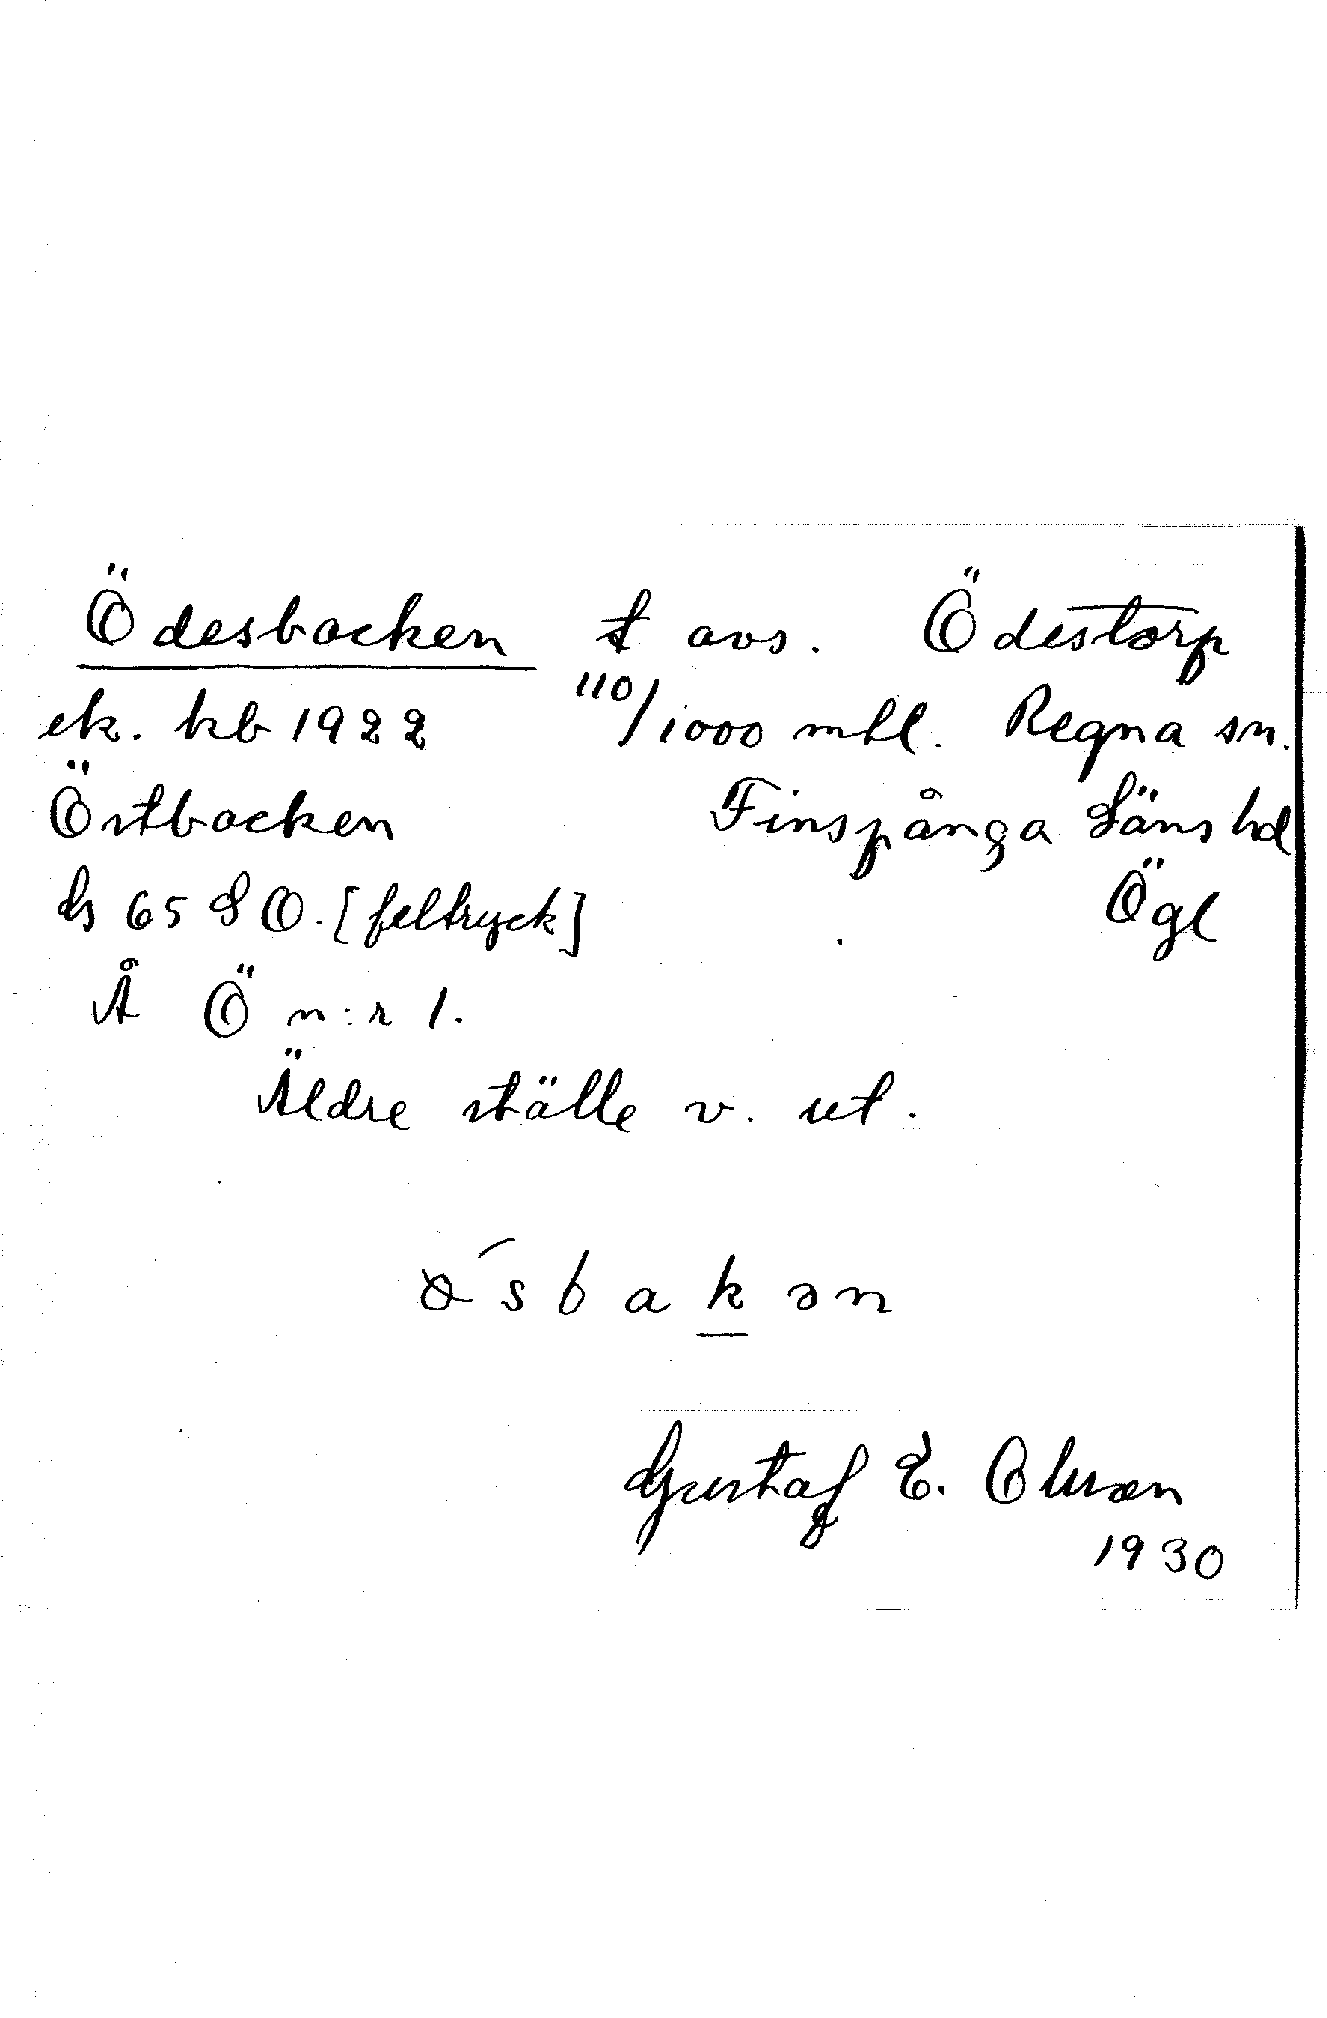 Ödesbacken t avs. Ödestorp
ek. kb 1922 110/1000 mtl. Regna sn.
Östbacken Finspånga Läns hd
hs 65 SO. [feltryck] Ögl
Å Ö n:r 1.
Äldre ställe v. ut.
sbakən
Gustaf E. Olsson
1930